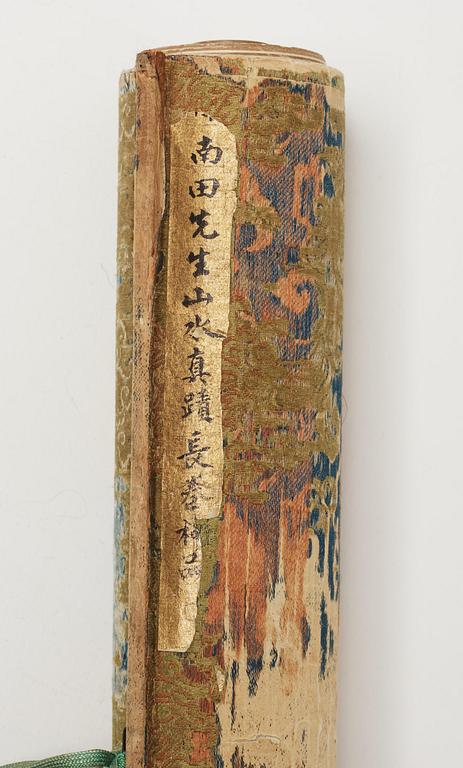 南田先生山水真蹟長卷神品